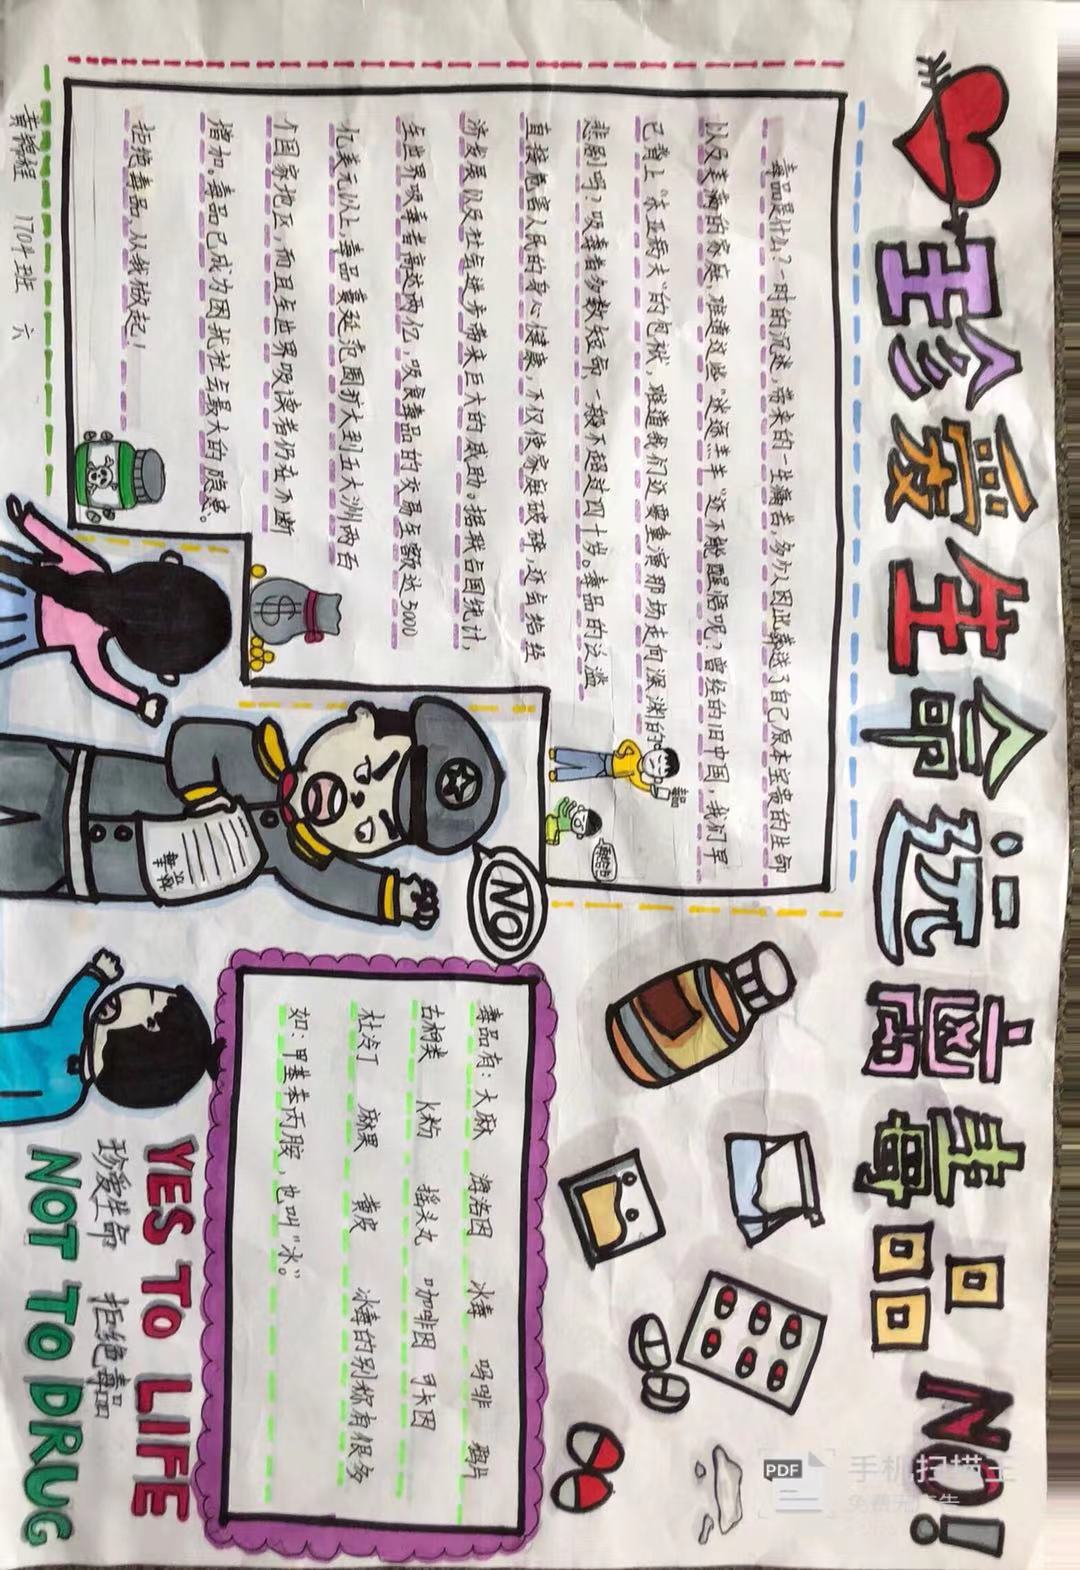 珍爱生命远离毒品 NO!
毒品是什么？一时的沉迷，带来的一生痛苦，多少人因此葬送了自己原本宝贵的生命
以及美满的家庭，难道这些“迷途羔羊”还不能醒悟呢？曾经的旧中国，我们早
已背上“东亚病夫”的包袱，难道我们还要重演那场走向深渊的
悲剧吗？吸毒者多数短命，一般不超过四十岁。毒品的泛滥
直接危害人民的身心健康，不仅使家庭破碎，还会给经
济发展以及社会进步带来巨大的威胁。据联合国统计，
全世界吸毒者高达两亿，吸食毒品的交易金额达5000
亿美元以上，毒品蔓延范围扩大到五大洲两百
个国家地区，而且全世界吸读者仍在不断
增加。毒品已成为困扰社会最大的隐患。
拒绝毒品，从我做起！
毒品
$
NO
毒品有：大麻 海洛因 冰毒 吗啡 鸦片
古柯类 K粉 摇头丸 咖啡因 可卡因
杜冷丁 麻果 黄皮 冰毒的别称有很多
如：甲基苯丙胺，也叫“冰”。
YES TO LIFE
珍爱生命 拒绝毒品
NOT TO DRUG
1704班 六
PDF 手机扫描王